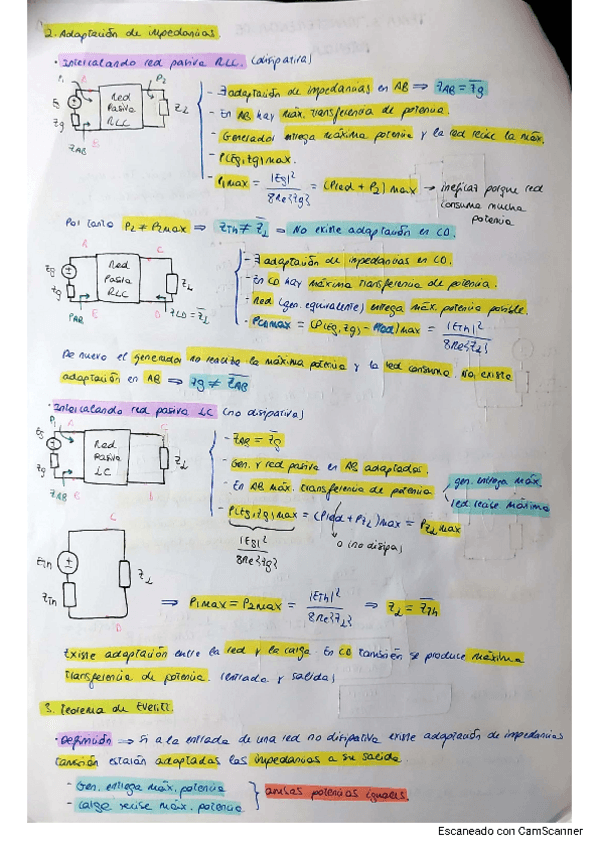 2. Adaptación de impedancias.
· Intercalando red pasiva RLC. (disipativa)
P1 A P2
Eg
Zg
Red
Pasiva
RLC
ZL
ZAB B
- ∃ adaptación de impedancias en AB ⇒ ZAB = Z̄g
- En AB hay máx. transferencia de potencia.
- Generador entrega máxima potencia y la red recibe la máx.
- P(Eg,Zg)max.
- P1max = |Eg|² / 8Re{Zg} = (Pred + P2) max → ineficaz porque red
consume mucha
potencia
Por tanto P2 ≠ P2max ⇒ ZTh ≠ Z̄L ⇒ No existe adaptación en CD.
A C
Eg
Zg
Red
Pasiva
RLC
ZL
PAB B D ZCD = Z̄L
- ∃ adaptación de impedancias en CD.
- En CD hay máxima transferencia de potencia.
- Red (gen. equivalente) entrega máx. potencia posible.
- PCDmax = (P(Eg,Zg) - Pred)max = |ETh|² / 8Re{ZL}
De nuevo el generador no realiza la máxima potencia y la red consume. No existe
adaptación en AB ⇒ Zg ≠ Z̄AB
· Intercalando red pasiva LC (no disipativa)
P1 A C
Eg
Zg
Red
Pasiva
LC
ZL
ZAB B D
- ZAB = Z̄g
- Gen. y red pasiva en AB adaptados.
- En AB máx. transferencia de potencia
gen. entrega máx.
red recibe máxima
- P(Eg,Zg)max = (Pred + PZL)max = PZL max
|Eg|² / 8Re{Zg}
0 (no disipa)
C
ETh
ZTh
ZL
D
⇒ P1max = P2max = |ETh|² / 8Re{ZL} ⇒ ZL = Z̄Th
Existe adaptación entre la red y la carga. En CD también se produce máxima
transferencia de potencia. (entrada y salida)
3. Teorema de Everitt.
· Definición ⇒ Si a la entrada de una red no disipativa existe adaptación de impedancias
también estarán adaptadas las impedancias a su salida.
- Gen. entrega máx. potencia
- carga recibe máx. potencia
ambas potencias iguales.
Escaneado con CamScanner